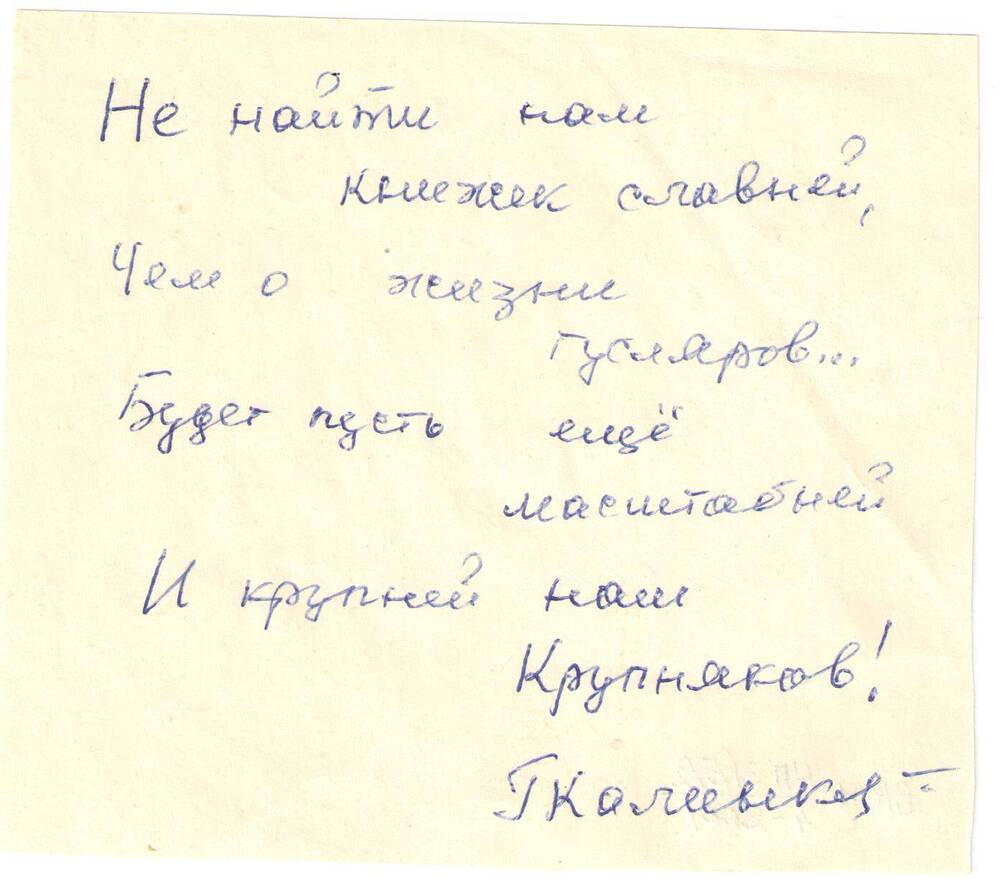 Не найти нам
книжек славней,
Чем о жизни
гусляров...
Будет пусть ещё
масштабней
И крупней наш
Крупняков!